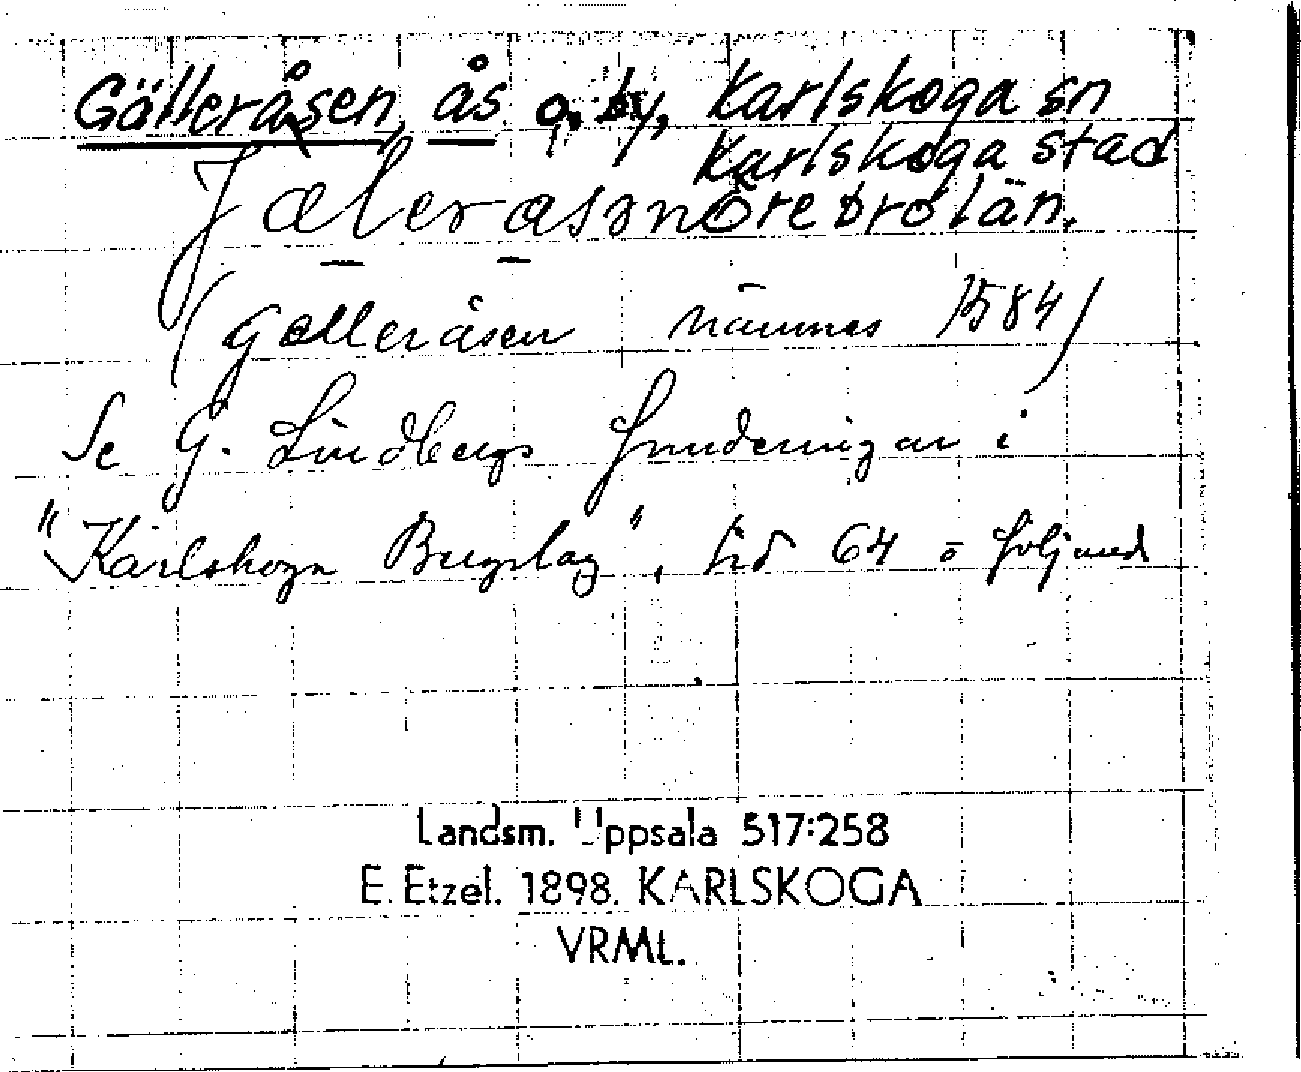 Gälleråsen, ås o. by, Karlskoga sn
Karlskoga stad
Jälerasen Örebro län.
(Gälleråsen nämnes 1584)
Se G. Lindbergs funderingar i
"Karlskoga Bergslag", sid 64 o följand
Landsm. Uppsala 517:258
E. Etzel. 1898. KARLSKOGA
VRML.